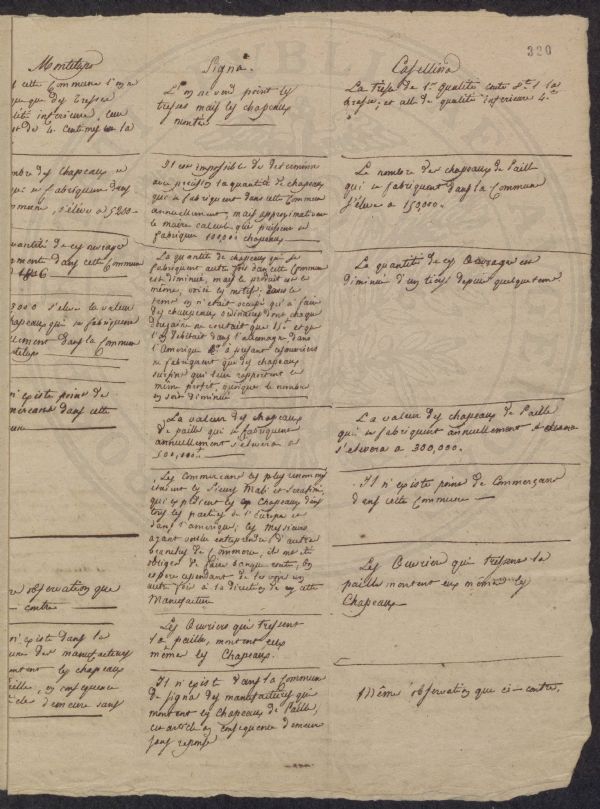 320
Montelupo
cette Commune l'on
que des tresses
lité inférieure,
de 4 centimes la
mbre des chapeaux
qui se fabriquent dans
mmune, s'élève à
quantité de ces ouvrages
dans cette Commune
1806
000 s'élève la valeur
chapeaux qui se fabriquent
annuellement dans la Commune
n'existe point de
commerçans dans cette
observation que
contre
n'existe dans la
des manufactures
montent les chapeaux
paille, en conséquence
demeure sans
Signa.
L'on ne vend point les
tresses mais les chapeaux
montés
Il est impossible de determiner
avec précision la quantité de chapeaux
qui se fabriquent dans cette Commune
annuellement, mais approximativement
le maire calcule que puissent se
fabriquer 100000 chapeaux
La quantité de chapeaux qui se
fabriquent autre fois dans cette Commune
est diminué, mais le produit est le
même, voici les motifs: Dans le
tems on n'était occupé qu'à faire
des chapeaux ordinaires dont chaque
douzaine ne coutait que 15 et que
l'on débitait dans l'allemagne dans
l'Amerique à présent
se fabriquent que des chapeaux
surfins qui leur rapportent le
même profit, quoique le nombre
en soit diminué
La valeur des chapeaux
de paille qui se fabriquent
annuellement s'élevera à
500,000
Les Commerçans les plus renommés
étaient les Sieurs Mabi et Serafini,
qui expédient les Chapeaux dans
tous les parties de l'Europe et
dans l'amerique; ces messieurs
ayant voulu entreprendre d'autres
branches de Commerce, il ont été
obligés de faire banque route, on
espere cependant de les voir un
autre fois à la direction de cette
Manufacture
Les Ouvriers qui tressent
la paille, montent eux
même les Chapeaux.
Il n'existe dans la Commune
de Signa des manufactures qui
montent les Chapeaux de Paille,
cet article en conséquence demeure
sans réponse
Casellina
La tresse de 1re qualité coute 8 la
tresse, et celle de qualité inférieure 4
Le nombre des chapeaux de Paille
qui se fabriquent dans la Commune
s'élève à 150,000.
La quantité de ces Ouvrages est
diminuée d'un tiers depuis quelque tems
La valeur des chapeaux de Paille
qui se fabriquent annuellement
s'elevera à 300,000.
Il n'existe point de Commerçans
dans cette Commune
Les Ouvriers qui tressent la
paille montent eux même les
Chapeaux
Même observation que ci-contre.